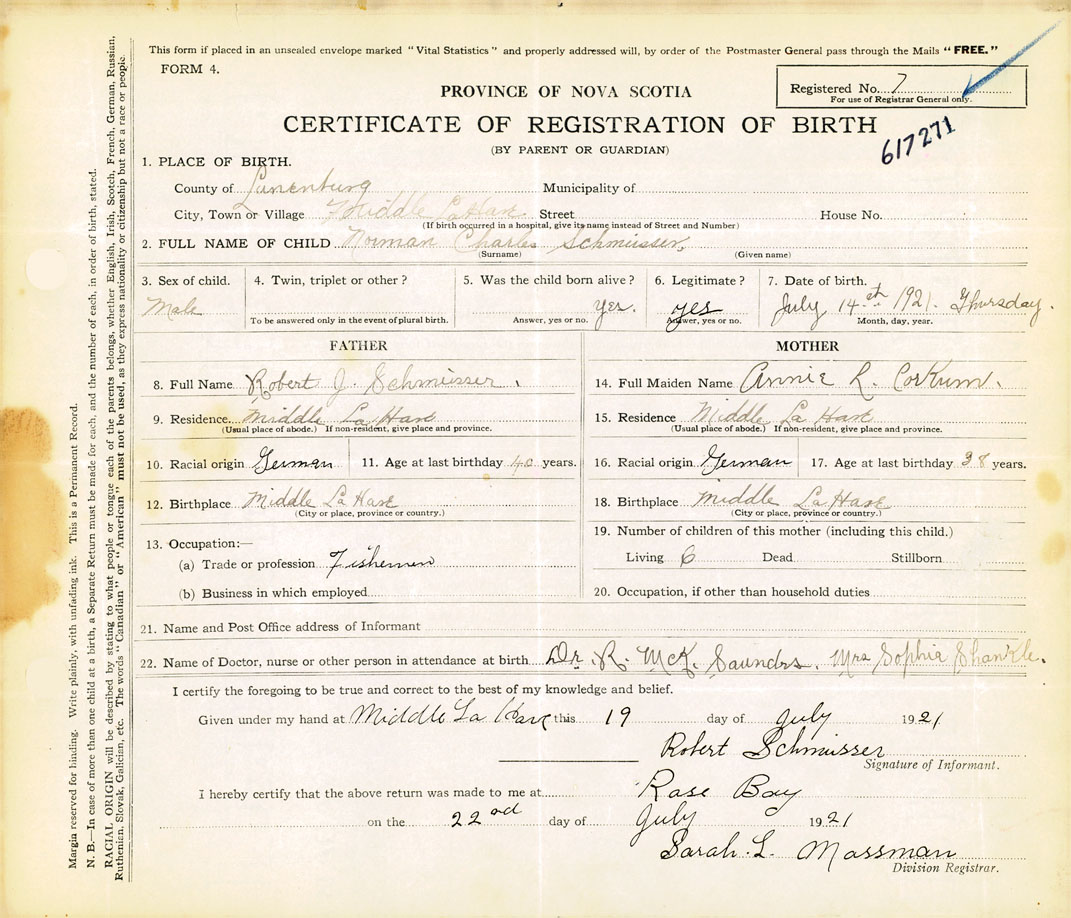 This form if placed in an unsealed envelope marked "Vital Statistics" and properly addressed will, by order of the Postmaster General pass through the Mails "FREE."
FORM 4.
Registered No. 7
For use of Registrar General only.
PROVINCE OF NOVA SCOTIA
CERTIFICATE OF REGISTRATION OF BIRTH
617271
(BY PARENT OR GUARDIAN)
1. PLACE OF BIRTH.
County of Lunenburg Municipality of
City, Town or Village Middle LaHave Street House No.
(If birth occurred in a hospital, give its name instead of Street and Number)
2. FULL NAME OF CHILD Norman Charles Schmeisser,
(Surname) (Given name)
3. Sex of child. 4. Twin, triplet or other? 5. Was the child born alive? 6. Legitimate? 7. Date of birth.
Male Yes. yes July 14th 1921. Thursday.
To be answered only in the event of plural birth. Answer, yes or no. Answer, yes or no. Month, day, year.
FATHER MOTHER
8. Full Name Robert J. Schmeisser. 14. Full Maiden Name Annie L. Corkum.
9. Residence Middle LaHave 15. Residence Middle LaHave
(Usual place of abode.) If non-resident, give place and province. (Usual place of abode.) If non-resident, give place and province.
10. Racial origin German 11. Age at last birthday 40 years. 16. Racial origin German 17. Age at last birthday 38 years.
12. Birthplace Middle LaHave 18. Birthplace Middle LaHave
(City or place, province or country.) (City or place, province or country.)
13. Occupation:— 19. Number of children of this mother (including this child.)
(a) Trade or profession Fishemen Living 6 Dead Stillborn
(b) Business in which employed 20. Occupation, if other than household duties
21. Name and Post Office address of Informant
22. Name of Doctor, nurse or other person in attendance at birth Dr. R. McK. Saundrs. Mrs Sophia Shankle.
I certify the foregoing to be true and correct to the best of my knowledge and belief.
Given under my hand at Middle La Have this 19 day of July 1921
Robert Schmeisser
Signature of Informant.
I hereby certify that the above return was made to me at Rose Bay
on the 22nd day of July 1921
Sarah. L. Mossman
Division Registrar.
Margin reserved for binding. Write plainly, with unfading ink. This is a Permanent Record.
N. B.—In case of more than one child at a birth, a Separate Return must be made for each, and the number of each, in order of birth, stated.
RACIAL ORIGIN will be described by stating to what people or tongue each of the parents belongs, whether English, Irish, Scotch, French, German, Russian,
Ruthenian, Slovak, Galician, etc. The words "Canadian" or "American" must not be used, as they express nationality or citizenship but not a race or people.